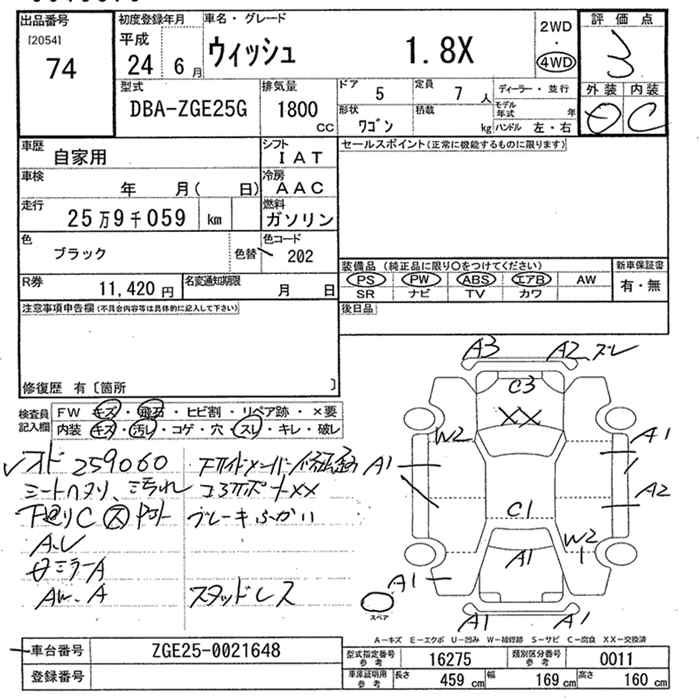 出品番号
[2054]
74
初度登録年月
平成
24 6 月
車名・グレード
ウィッシュ 1.8X
2WD
4WD
評価点
3
外装 内装
C
型式
DBA-ZGE25G
排気量
1800 CC
ドア 5
定員 7 人
形状 ワゴン
積載 kg
ディーラー・並行
モデル年式 年
ハンドル 左・右
車歴
自家用
シフト
IAT
車検
年 月( 日)
冷房
AAC
走行
25万9千059 km
燃料
ガソリン
色
ブラック
色替
色コード
202
R券
11,420 円
名変通知期限
月 日
セールスポイント(正常に機能するものに限ります)
装備品(純正品に限り○をつけてください)
PS PW ABS エアB AW
SR ナビ TV カワ
新車保証書
有・無
後日品
注意事項申告欄(不具合内容等は具体的に記入して下さい)
修復歴 有〔箇所 〕
検査員記入欄
FW キズ・飛石・ヒビ割・リペア跡・×要
内装 キズ・汚レ・コゲ・穴・スレ・キレ・破レ
259060
シートヘタリ、汚れ
下廻りC
スタッドレス
A3 A2 スレ
C3
XX
W2
A1
A1
A2
C1
W2
A1
A1
A1
A1
スペア
A-キズ E-エクボ U-凹み W-補修跡 S-サビ C-腐食 XX-交換済
車台番号 ZGE25-0021648
登録番号
型式指定番号参考 16275
類別区分番号参考 0011
車庫証明用参考 長さ 459 cm 幅 169 cm 高さ 160 cm